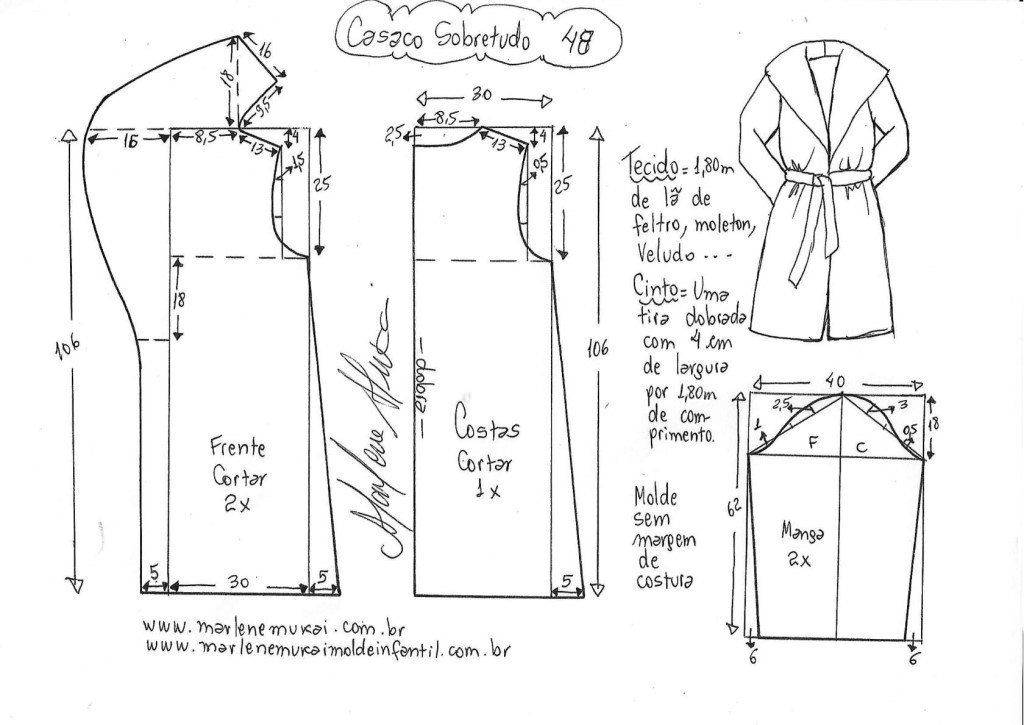 Casaco Sobretudo 48
16
18
9,5
16
8,5
13
4
1,5
25
18
106
Frente
Cortar
2x
5
30
5
30
8,5
2,5
13
4
0,5
25
106
dobra
Costas
Cortar
1x
5
Marlene Mukai
Tecido = 1,80m
de lã de
feltro, moleton,
Veludo ...
Cinto = Uma
tira dobrada
com 4 cm
de largura
por 1,80m
de com-
primento.
Molde
sem
margem
de
costura
40
2,5
3
1
0,5
18
F
C
62
Manga
2x
6
6
www.marlenemukai.com.br
www.marlenemukaimoldeinfantil.com.br